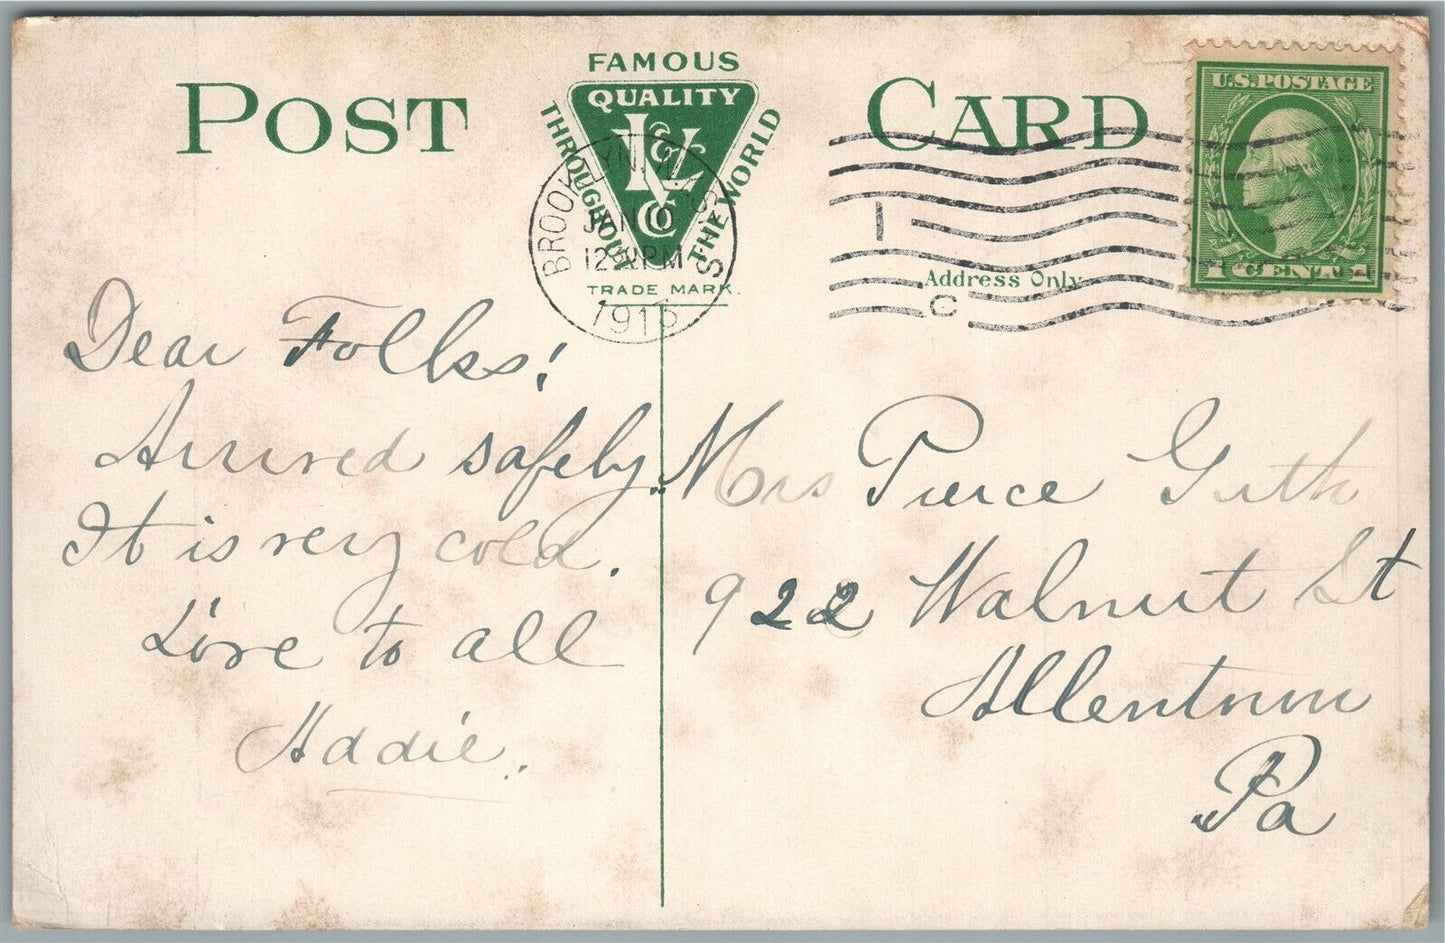 POST CARD
FAMOUS
QUALITY
THROUGHOUT
THE WORLD
TRADE MARK.
BROOKLYN, N.Y.
12 PM
U.S. POSTAGE
1 CENT 1
Address Only
C
Dear Folks!
Arrived safely.
It is very cold.
Love to all
Addie.
Mrs Pierce Guth
922 Walnut St
Allentown
Pa